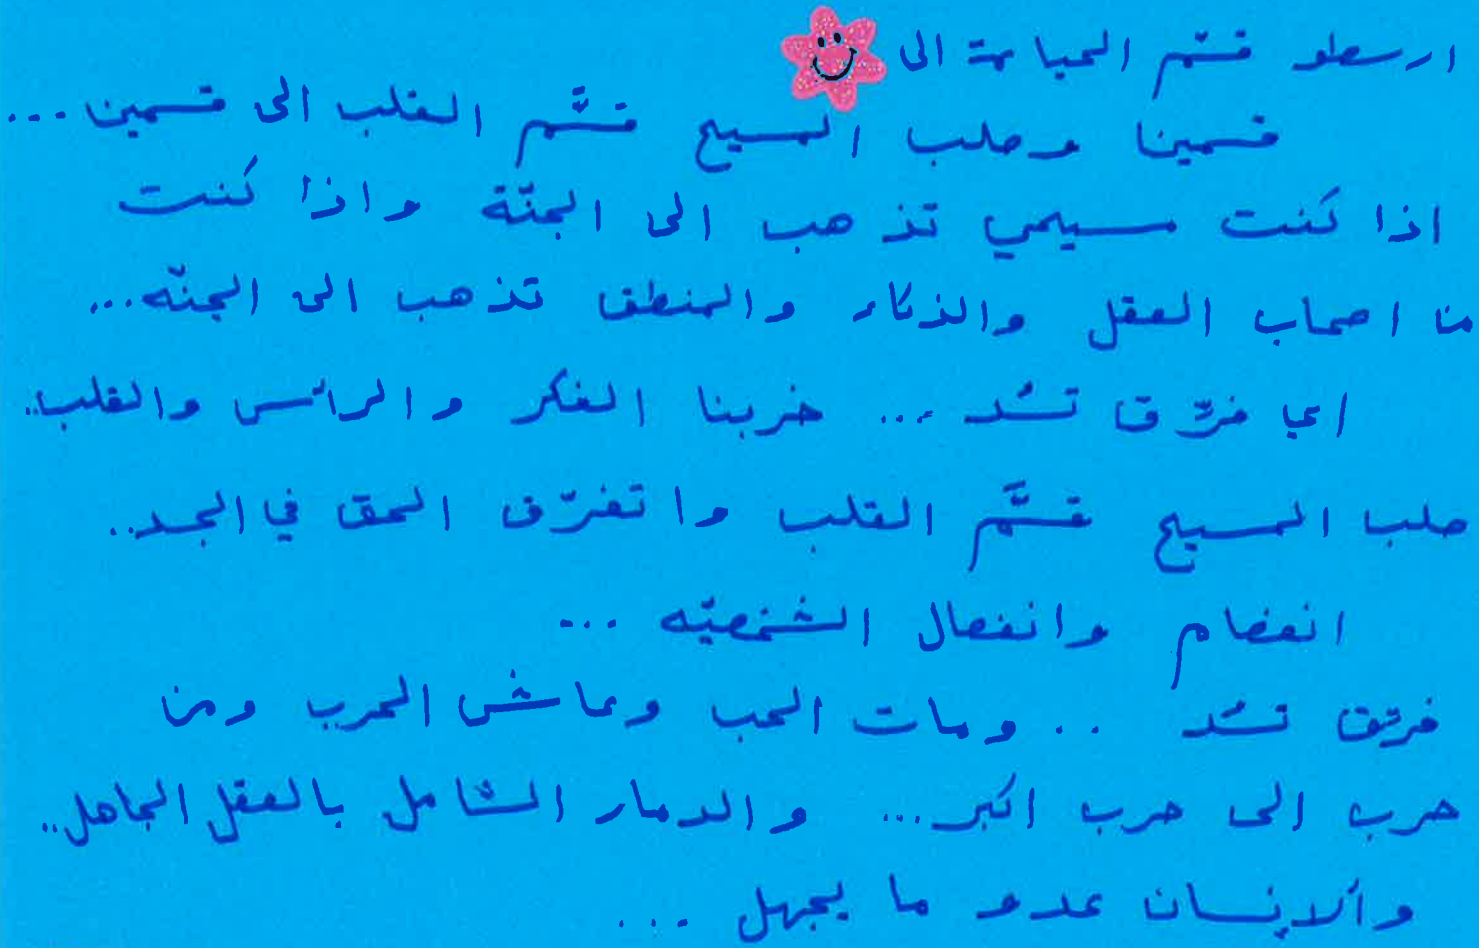 ارسطو قسّم الحياة الى
قسمين وصلب المسيح قسَّم القلب الى قسمين...
اذا كنت مسيحي تذهب الى الجنّة واذا كنت
من اصحاب العقل والذكاء والمنطق تذهب الى الجنّه...
اي فرّق تسُد ... خربنا الفكر والرأس والقلب..
صلب المسيح قسَّم القلب واتفرّق الحق في الجسد..
انفصام وانفصال الشخصيّه ...
فرّق تسُد .. ومات الحب وعاش الحرب ومن
حرب الى حرب اكبر... والدمار الشامل بالعقل الجاهل..
والانسان عدو ما يجهل ...